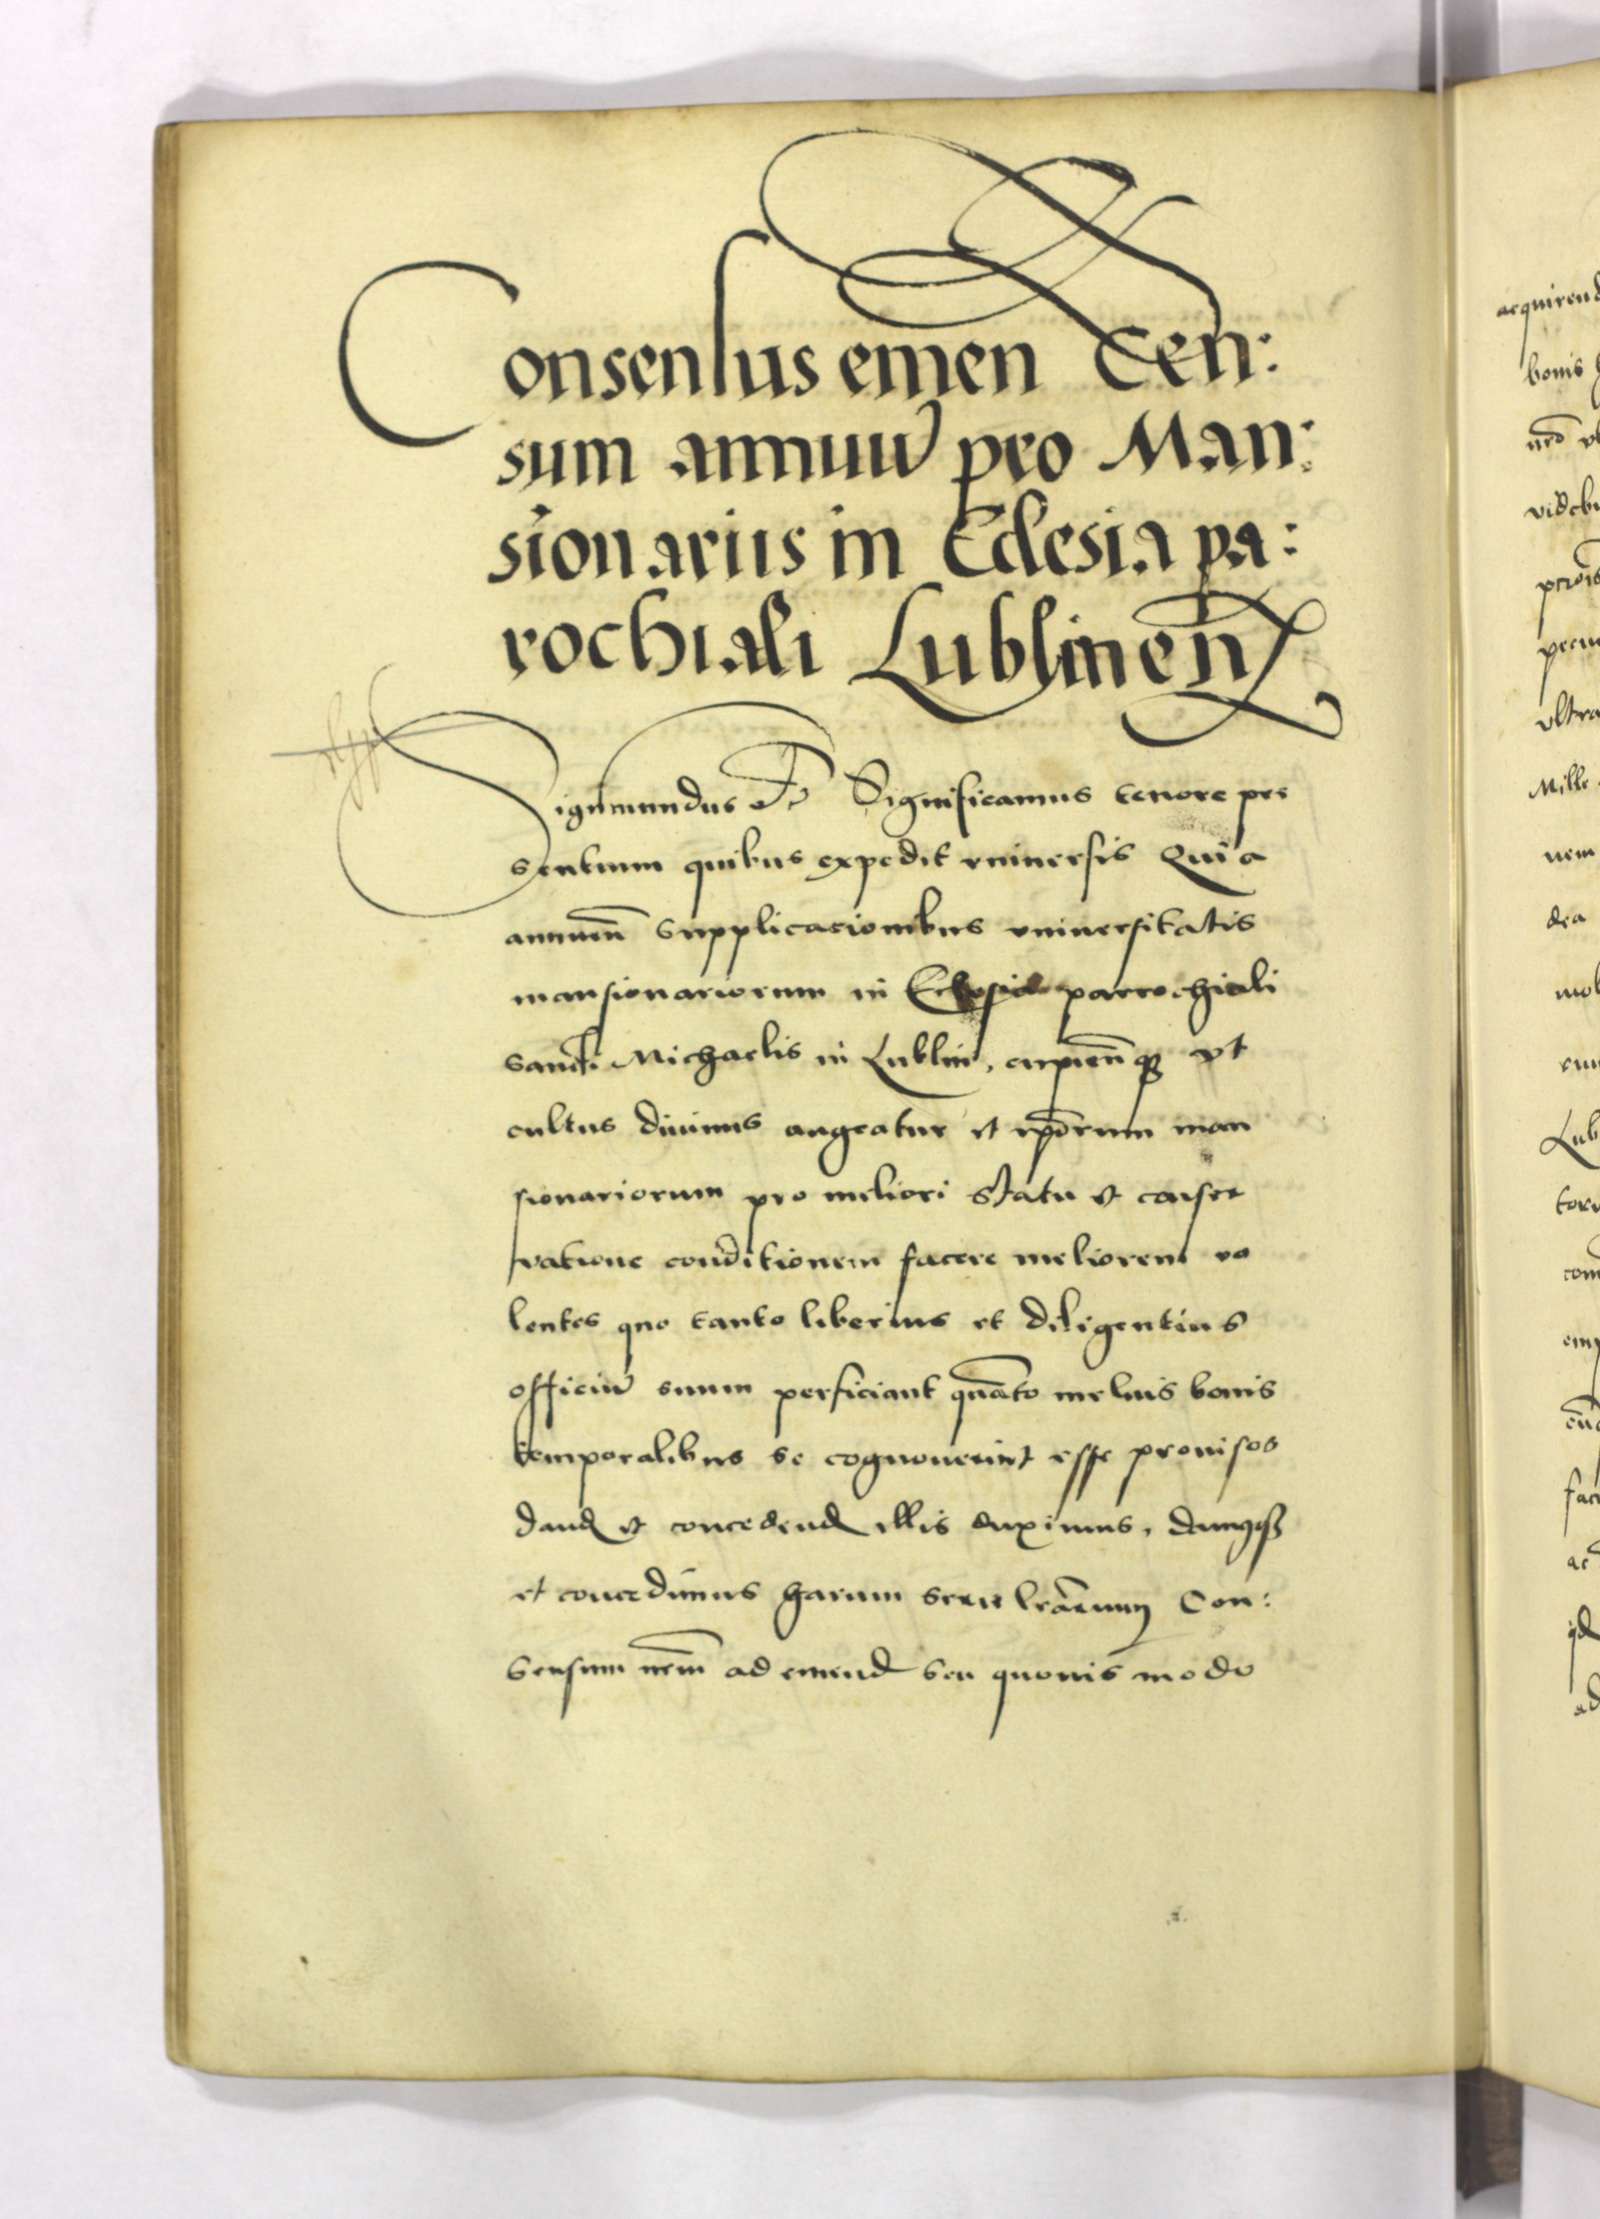 Consensus emen Cen:
sum annuu̅ pro Man:
sionariis in Ecclesia pa:
rochiali Lublinen̅
Sigismundus etc Significamus tenore pre
sentium quibus expedit vniuersis Quia
annuen̅ supplicacionibus vniuersitatis
mansionariorum in Ecclesia parrochiali
sancti Michaelis in Lublin, cupien̅ qʒ vt
cultus diuinus augeatur et ip̅orum man
sionariorum pro meliori statu et conser
vatione conditionem facere meliorem vo
lentes quo tanto liberius et diligentius
officiu̅ suum perficiant qua̅to melius bonis
temporalibus se cognouerint esse prouisos
dand et concedend illis duximus, damusqʒ
et concedimus harum serie l̅rarum Con:
sensum nr̅m ad emend seu quouis modo
acquirend
bonis
vltra
Mille
nem
dea
Lub